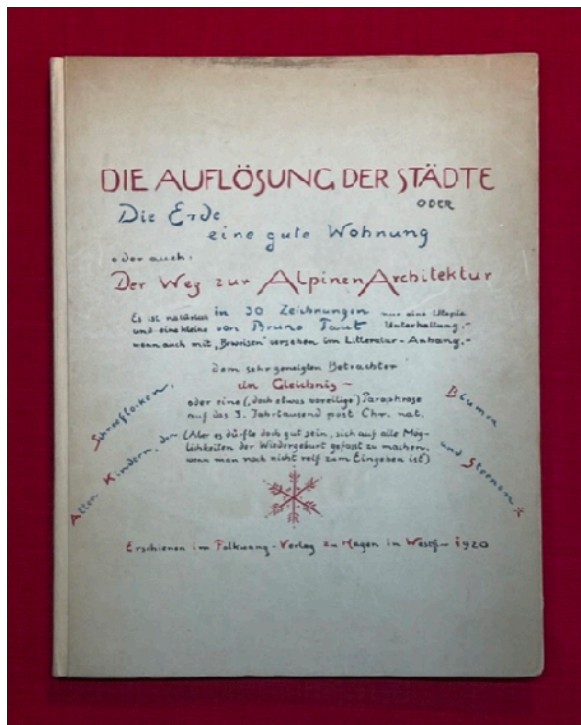 DIE AUFLÖSUNG DER STÄDTE
ODER
Die Erde
eine gute Wohnung
oder auch:
Der Weg zur Alpinen Architektur
Es ist natürlich in 30 Zeichnungen nur eine Utopie
und eine kleine von Bruno Taut Unterhaltung,-
wenn auch mit „Beweisen" versehen im Litteratur-Anhang.-
dem sehr geneigten Betrachter
Ein Gleichnis -
oder eine (,doch etwas voreilige) Paraphrase
auf das 3. Jahrtausend post Chr. nat.
(Aber es dürfte doch gut sein, sich auf alle Mög-
lichkeiten der Wiedergeburt gefasst zu machen,
wenn man noch nicht reif zum Eingehen ist)
Allen Kindern, den Schneeflocken,
Bäumen und Sternen
Erschienen im Folkwang-Verlag zu Hagen in Westf- 1920